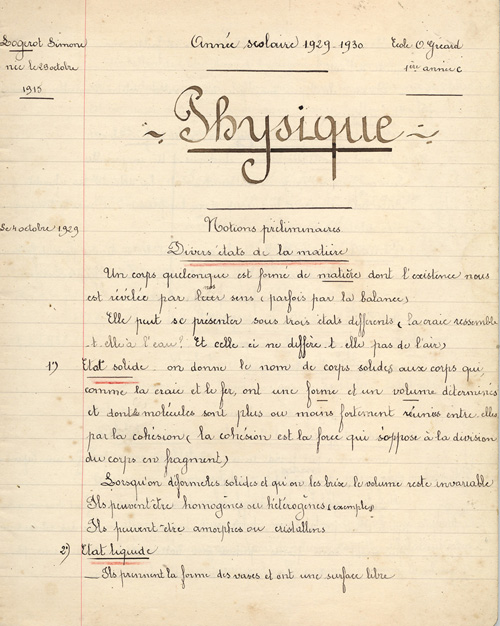 Logerot Simone
née le 28 octobre
1915
Année scolaire 1929-1930
Ecole O Gréard
1ère année C
~ Physique ~
Le 4 octobre 1929
Notions préliminaires
Divers états de la matière
Un corps quelconque est formé de matière dont l'existence nous
est révélée par nos sens (parfois par la balance)
Elle peut se présenter sous trois états différents (la craie ressemble
t-elle à l'eau? Et celle-ci ne diffère-t-elle pas de l'air)
1°) Etat solide - on donne le nom de corps solides aux corps qui
comme la craie et le fer, ont une forme et un volume déterminés
et dont les molécules sont plus ou moins fortement réunies entre elles
par la cohésion (la cohésion est la force qui s'oppose à la division
du corps en fragment)
Lorsqu'on déforme les solides et qu'on les brise le volume reste invariable
Ils peuvent-être homogènes ou hétérogènes (exemples
Ils peuvent-être amorphes ou cristallins
2°) Etat liquide
_ Ils prennent la forme des vases et ont une surface libre